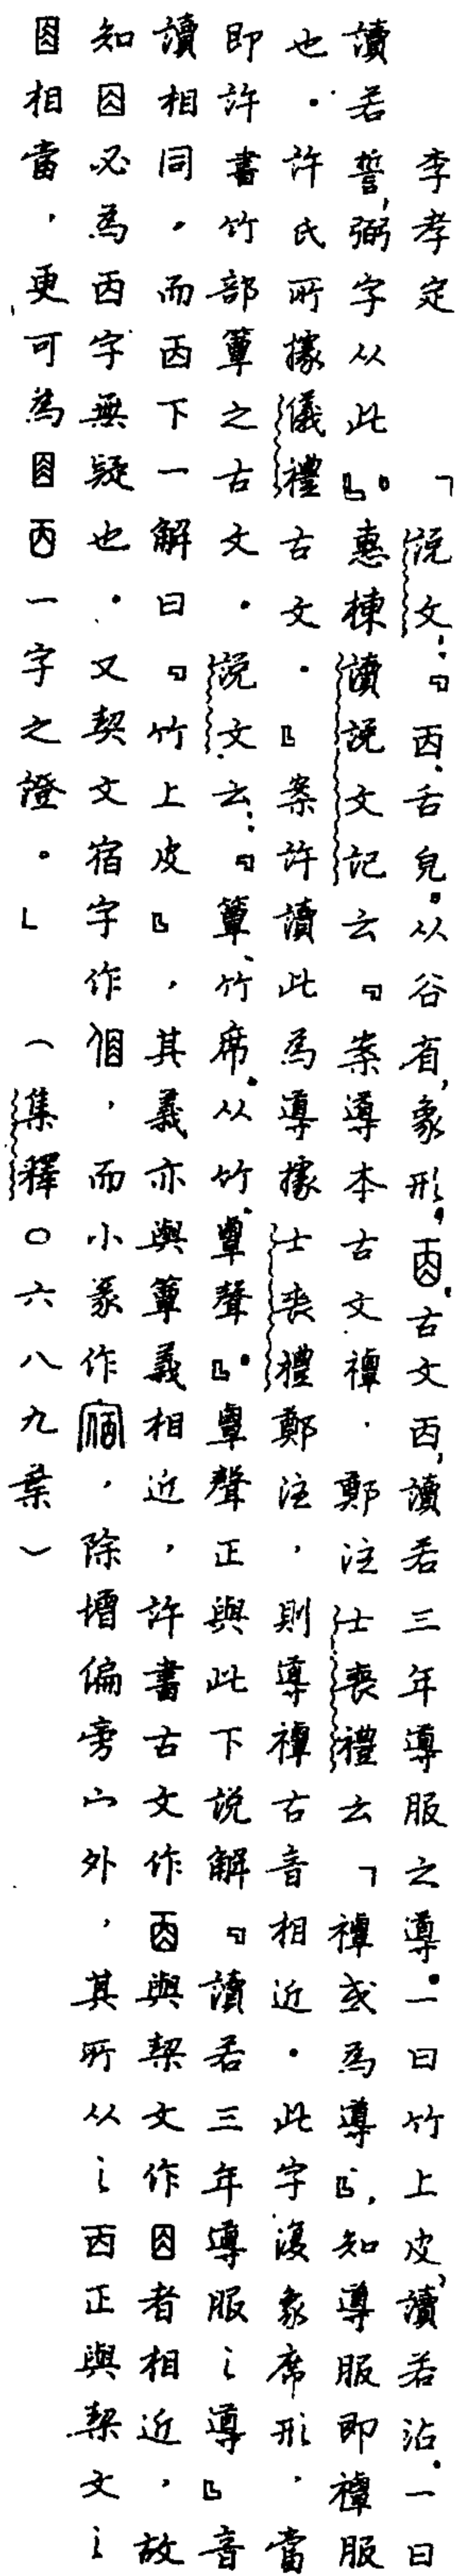 李孝定「說文:『㐁,舌皃。从谷省,象形。𠧩,古文㐁,讀若三年導服之導。一曰竹上皮,讀若沾。一曰
讀若誓,弼字从此』。惠棟讀說文記云『案導本古文禫.鄭注士喪禮云「禫或為導』,知導服即禫服
也.許氏所據儀禮古文.』案許讀此為導據士喪禮鄭注,則導禫古音相近.此字復象席形,當
即許書竹部簟之古文.說文云:『簟,竹席。从竹覃聲』。覃聲正與此下說解『讀若三年導服之導』音
讀相同,而㐁下一解曰『竹上皮』,其義亦與簟義相近,許書古文作𠧩與契文作囦者相近,故
知必為㐁字無疑也.又契文宿字作,而小篆作,除增偏旁宀外,其所从之㐁正與契文之
相當,更可為㐁一字之證.」(集釋○六八九葉)